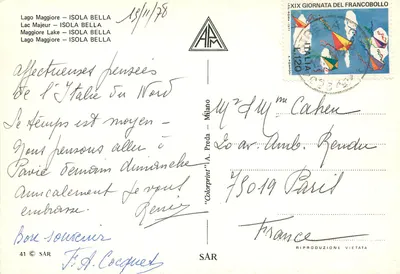 Lago Maggiore – ISOLA BELLA
Lac Majeur – ISOLA BELLA
Maggiore Lake – ISOLA BELLA
Lago Maggiore – ISOLA BELLA
13/11/78
Affectueuses pensées
de l'Italie du Nord
Le temps est moyen –
Nous pensons aller à
Pavie demain dimanche
Amicalement je vous
embrasse. Renée
Bon souvenir
F. A. Cocquet
41 © SAR
SAR
"Colorprint" I.A. Preda - Milano
XIX GIORNATA DEL FRANCOBOLLO
ITALIA
120
Mr & Mme Cahen
20 av. Amb. Rendu
75019 Paris
France
RIPRODUZIONE VIETATA